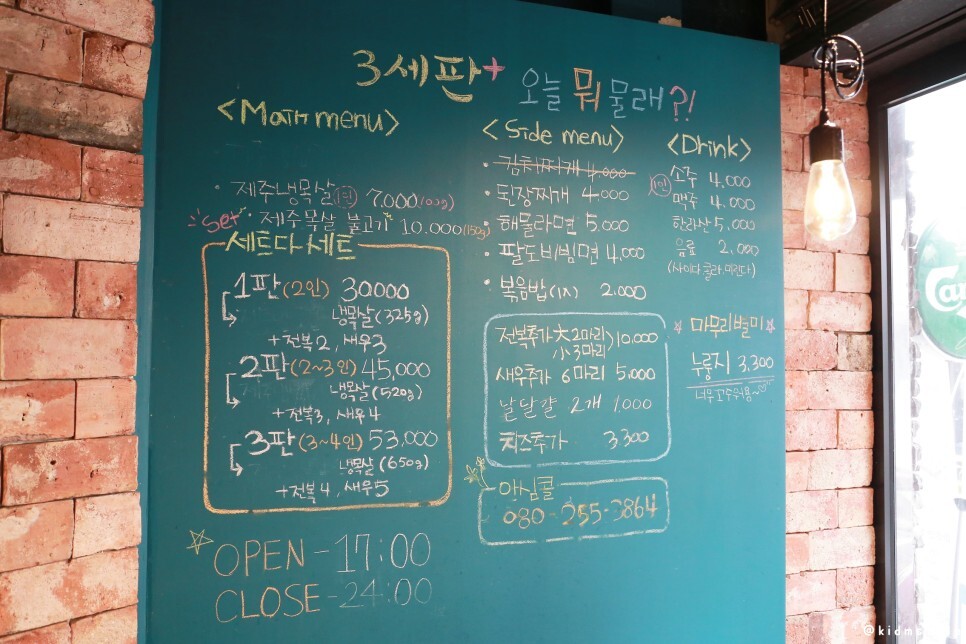 3세판+ 오늘 뭐 물래?!
<Main menu>
· 제주냉목살 7.000(100g)
Set · 제주목살 불고기 10.000(150g)
세트다세트
1판(2인) 30000
냉목살(325g)
+전복2, 새우3
2판(2~3인) 45,000
냉목살(520g)
+전복3, 새우4
3판(3~4인) 53,000
냉목살(650g)
+전복4, 새우5
OPEN-17:00
CLOSE-24:00
<Side menu>
· 김치찌개 4.000
· 된장찌개 4.000
· 해물라면 5.000
· 팔도비빔면 4,000
· 볶음밥(1人) 2.000
전복추가 大2마리
小3마리 >10.000
새우추가 6마리 5,000
날달걀 2개 1,000
치즈추가 3300
안심콜
080-255-3864
<Drink>
소주 4,000
맥주 4.000
한라산 5,000
음료 2,000
(사이다 콜라 미린다)
마무리별미
누룽지 3,300
너무고수워용~
@kidm